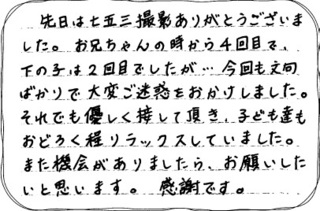 先日は七五三撮影ありがとうございま
した。お兄ちゃんの時から4回目で、
下の子は2回目でしたが…今回も文句
ばかりで大変ご迷惑をおかけしました。
それでも優しく接して頂き、子ども達も
おどろく程リラックスしていました。
また機会がありましたら、お願いした
いと思います。 感謝です。